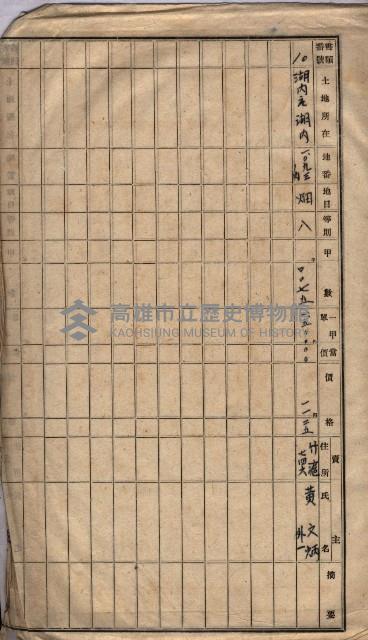 書類番號
土地所在
地番
地目
等則
甲數
一甲當單價
價格
賣主
住所
氏名
摘要
10
湖内庄湖内
一〇九三
内
畑
八
一一三五
竹滬
七四六
黄文炳
外一
高雄市立歷史博物館
KAOHSIUNG MUSEUM OF HISTORY